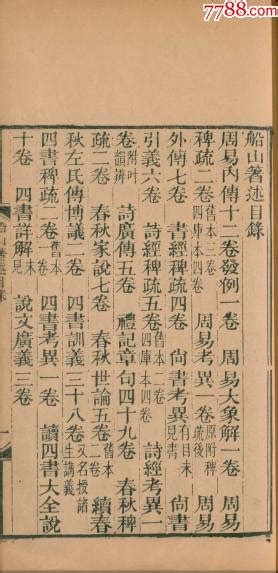 7788.com
船山著述目錄
周易內傳十二卷發例一卷 周易大象解一卷 周易
稗疏二卷 舊本三卷四庫本四卷 周易考異一卷 原附稗疏後 周易
外傳七卷 書經稗疏四卷 尚書考異 有目未見書 尚書
引義六卷 詩經稗疏五卷 舊本二卷四庫本四卷 詩經考異一
卷 附叶韻辨 詩廣傳五卷 禮記章句四十九卷 春秋稗
疏二卷 春秋家說七卷 春秋世論五卷 舊本二卷 續春
秋左氏傳博議二卷 四書訓義三十八卷 又名授諸生講義
四書稗疏二卷 舊本一卷 四書考異一卷 讀四書大全說
十卷 四書詳解 未見 說文廣義三卷
船山著述目錄 一